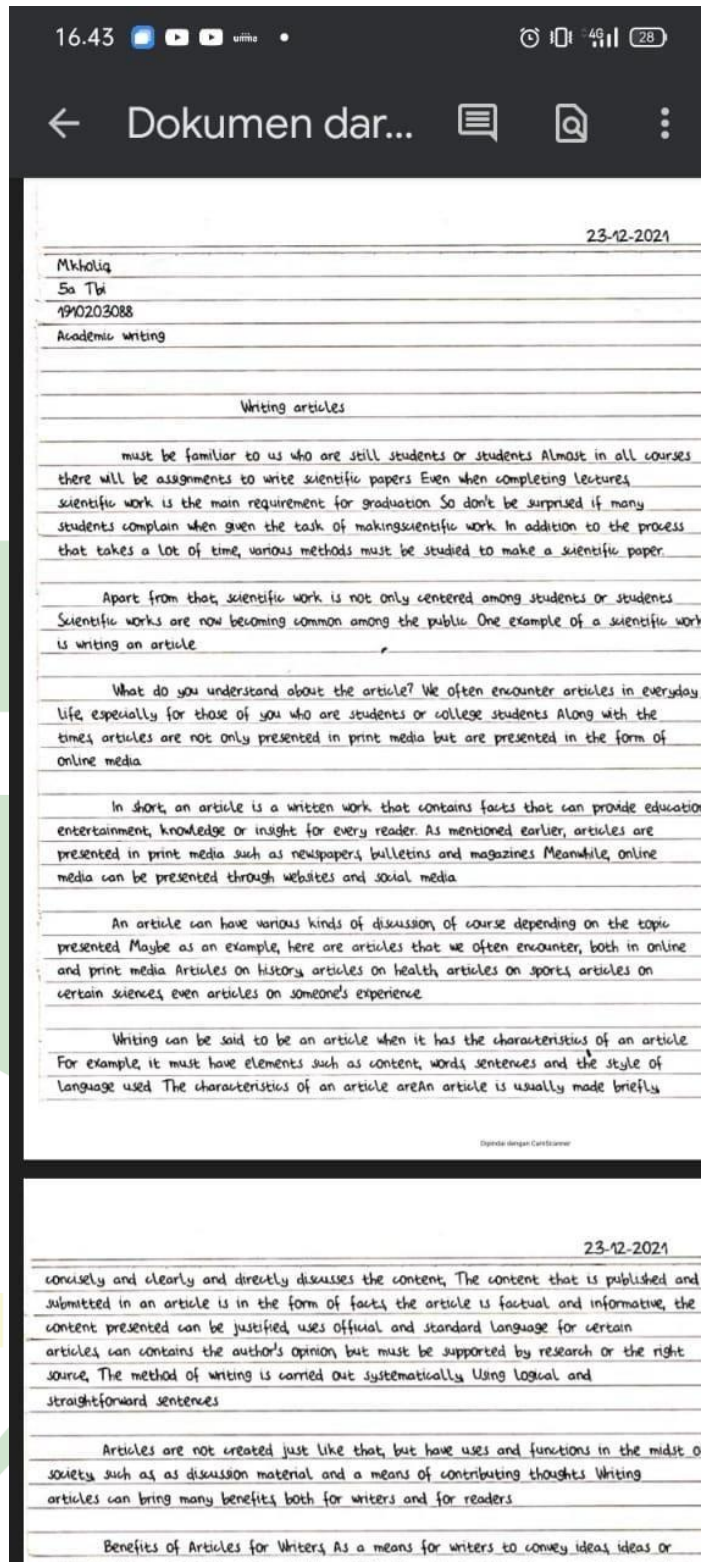 16.43 28
Dokumen dar...
23-12-2021
Mkholiq
5a Tbi
1910203088
Academic writing
Writing articles
must be familiar to us who are still students or students Almost in all courses
there will be assignments to write scientific papers Even when completing lectures,
scientific work is the main requirement for graduation So don't be surprised if many
students complain when given the task of makingscientific work In addition to the process
that takes a lot of time, various methods must be studied to make a scientific paper.
Apart from that, scientific work is not only centered among students or students
Scientific works are now becoming common among the public One example of a scientific work
is writing an article
What do you understand about the article? We often encounter articles in everyday
life, especially for those of you who are students or college students Along with the
times, articles are not only presented in print media but are presented in the form of
online media
In short, an article is a written work that contains facts that can provide education
entertainment, knowledge or insight for every reader. As mentioned earlier, articles are
presented in print media such as newspapers, bulletins and magazines Meanwhile, online
media can be presented through websites and social media
An article can have various kinds of discussion, of course depending on the topic
presented Maybe as an example, here are articles that we often encounter, both in online
and print media Articles on history, articles on health, articles on sports, articles on
certain sciences, even articles on someone's experience
Writing can be said to be an article when it has the characteristics of an article
For example, it must have elements such as content, words, sentences and the style of
language used The characteristics of an article areAn article is usually made briefly,
Dipindai dengan CamScanner
23-12-2021
concisely and clearly and directly discusses the content, The content that is published and
submitted in an article is in the form of facts, the article is factual and informative, the
content presented can be justified, uses official and standard language for certain
articles, can contains the author's opinion but must be supported by research or the right
source, The method of writing is carried out systematically Using logical and
straightforward sentences
Articles are not created just like that, but have uses and functions in the midst o
society, such as, as discussion material and a means of contributing thoughts Writing
articles can bring many benefits, both for writers and for readers
Benefits of Articles for Writers, As a means for writers to convey ideas, ideas or